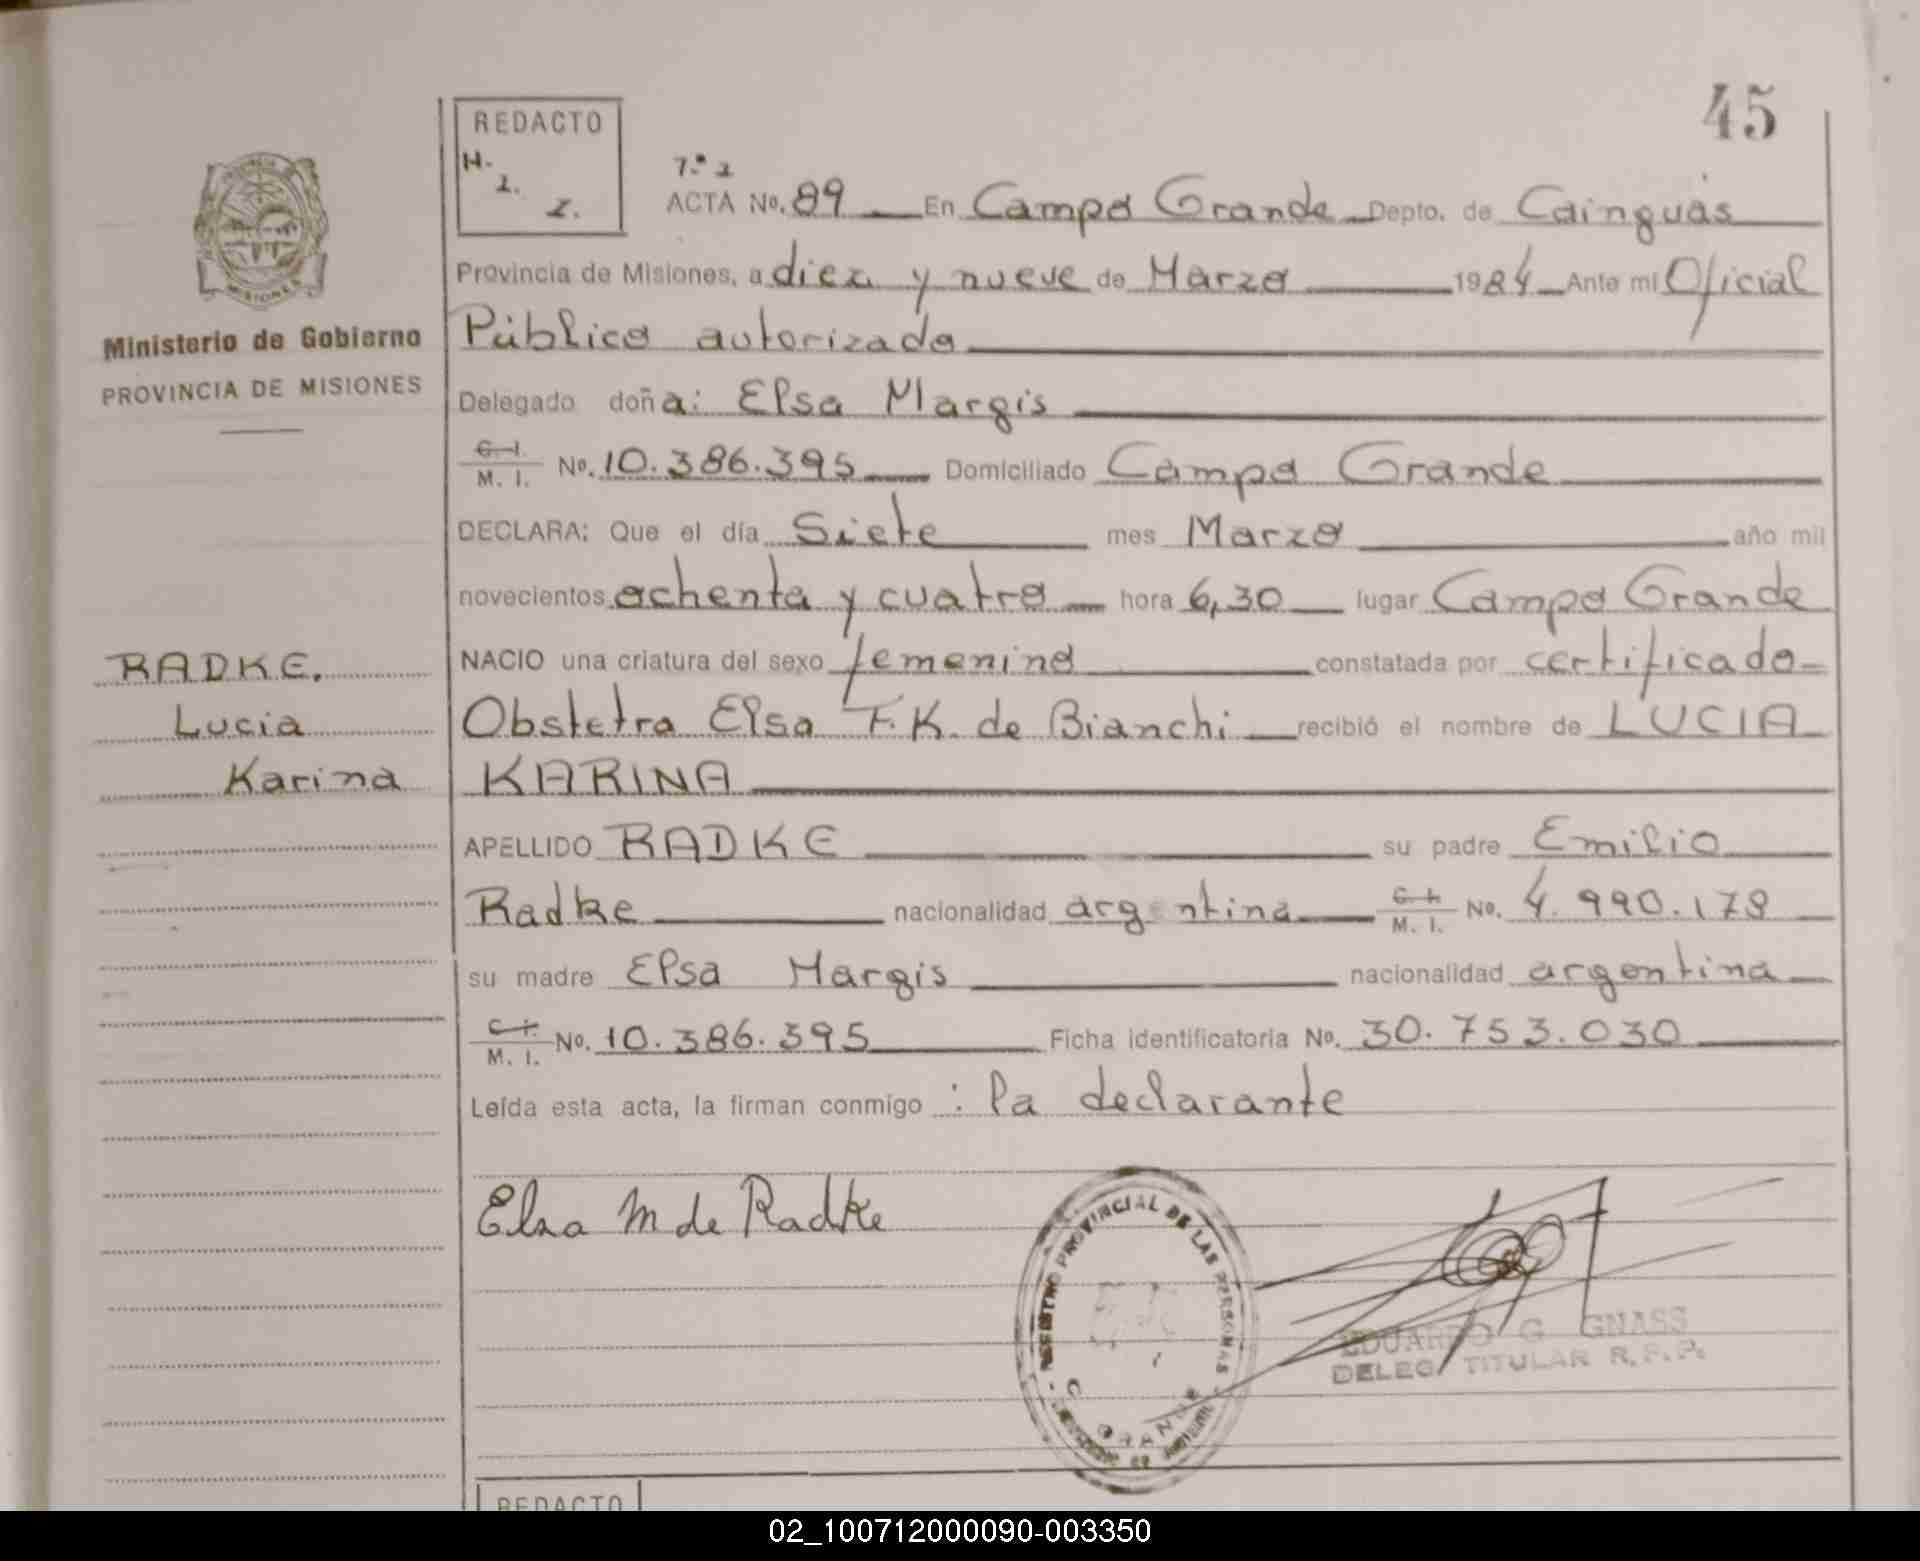 45
REDACTO
H.
I.
Z.
Tº 1
ACTA No. 89 En Campo Grande Depto. de Cainguás
Provincia de Misiones, a diez y nueve de Marzo 1984 Ante mi Oficial
Público autorizado
Delegado doña: Elsa Margis
C. I. / M. I. No. 10.386.395 Domiciliado Campo Grande
DECLARA: Que el día Siete mes Marzo año mil
novecientos ochenta y cuatro hora 6,30 lugar Campo Grande
NACIO una criatura del sexo femenino constatada por certificado
Obstetra Elsa F. K. de Bianchi recibió el nombre de LUCIA
KARINA
APELLIDO RADKE su padre Emilio
Radke nacionalidad argentina C. I. / M. I. No. 4.990.179
su madre Elsa Margis nacionalidad argentina
C. I. / M. I. No. 10.386.395 Ficha identificatoria No. 30.753.030
Leída esta acta, la firman conmigo : la declarante
Elsa M de Radke
MISIONES
Ministerio de Gobierno
PROVINCIA DE MISIONES
RADKE.
Lucia
Karina
REGISTRO PROVINCIAL DE LAS PERSONAS
GRANDE
EDUARDO G. GNASS
DELEG. TITULAR R.P.P.
REDACTO
02_100712000090-003350